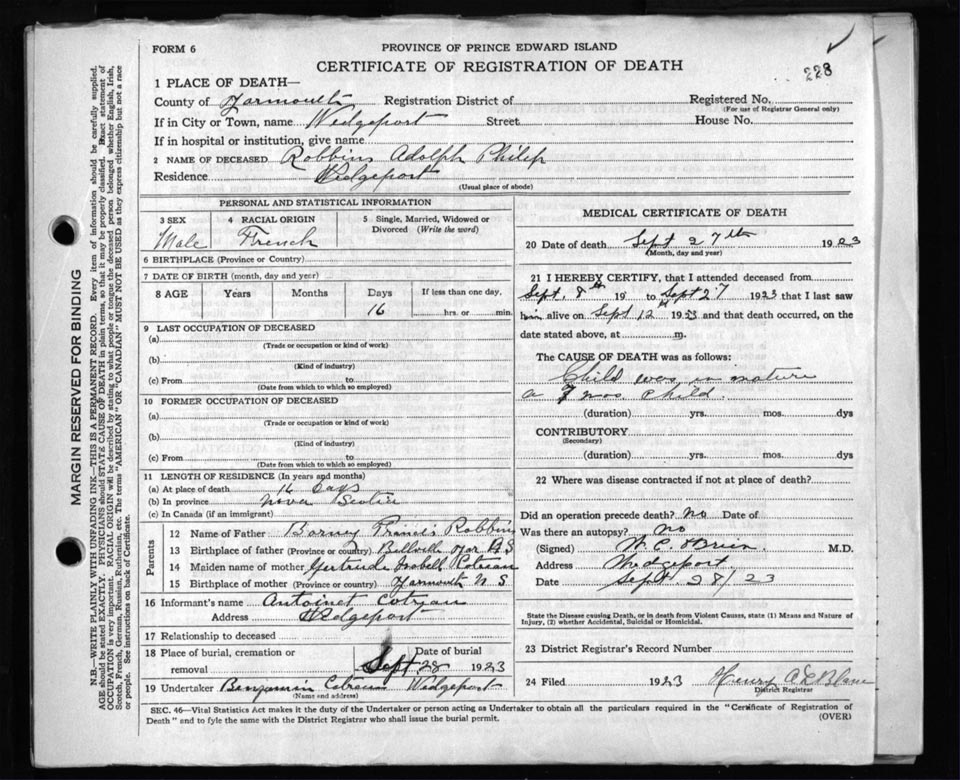 FORM 6
PROVINCE OF PRINCE EDWARD ISLAND
CERTIFICATE OF REGISTRATION OF DEATH
228
1 PLACE OF DEATH—
County of Yarmouth Registration District of Registered No.
(For use of Registrar General only)
If in City or Town, name Wedgeport Street House No.
If in hospital or institution, give name
2 NAME OF DECEASED Robbins Adolph Philip
Residence Wedgeport
(Usual place of abode)
PERSONAL AND STATISTICAL INFORMATION
3 SEX 4 RACIAL ORIGIN 5 Single, Married, Widowed or Divorced (Write the word)
Male French
6 BIRTHPLACE (Province or Country)
7 DATE OF BIRTH (month, day and year)
8 AGE Years Months Days If less than one day,
16 hrs. or min.
9 LAST OCCUPATION OF DECEASED
(a)
(Trade or occupation or kind of work)
(b)
(Kind of industry)
(c) From to
(Date from which to which so employed)
10 FORMER OCCUPATION OF DECEASED
(a)
(Trade or occupation or kind of work)
(b)
(Kind of industry)
(c) From to
(Date from which to which so employed)
11 LENGTH OF RESIDENCE (In years and months)
(a) At place of death 16 Days
(b) In province Nova Scotia
(c) In Canada (if an immigrant)
Parents
12 Name of Father Barney Francis Robbins
13 Birthplace of father (Province or country) Yar N S
14 Maiden name of mother Gertrude Isabell Cotreau
15 Birthplace of mother (Province or country) Yarmouth N S
16 Informant's name Antoinet Cotreau
Address Wedgeport
17 Relationship to deceased
18 Place of burial, cremation or removal Date of burial
Sept 28 1923
19 Undertaker Benjamin Cotreau Wedgeport
(Name and address)
MEDICAL CERTIFICATE OF DEATH
20 Date of death Sept 27th 1923
(Month, day and year)
21 I HEREBY CERTIFY, that I attended deceased from
Sept. 8th 19 to Sept 27 1923 that I last saw
him alive on Sept 12th 1923 and that death occurred, on the
date stated above, at m.
The CAUSE OF DEATH was as follows:
Child was in mature
a 7 mos child.
(duration) yrs. mos. dys
CONTRIBUTORY
(Secondary)
(duration) yrs. mos. dys
22 Where was disease contracted if not at place of death?
Did an operation precede death? no Date of
Was there an autopsy? no
(Signed) M.D.
Address Wedgeport
Date Sept 28/23
State the Disease causing Death, or in death from Violent Causes, state (1) Means and Nature of Injury, (2) whether Accidental, Suicidal or Homicidal.
23 District Registrar's Record Number
24 Filed 1923 Henry A LeBlanc
District Registrar
SEC. 46—Vital Statistics Act makes it the duty of the Undertaker or person acting as Undertaker to obtain all the particulars required in the "Certificate of Registration of
Death" and to fyle the same with the District Registrar who shall issue the burial permit.
(OVER)
MARGIN RESERVED FOR BINDING
N.B.—WRITE PLAINLY WITH UNFADING INK—THIS IS A PERMANENT RECORD. Every item of information should be carefully supplied.
AGE should be stated EXACTLY. PHYSICIANS should STATE CAUSE OF DEATH in plain terms, so that it may be properly classified. Exact statement of
OCCUPATION is very important. RACIAL ORIGIN will be described by stating to what people or tongue the deceased person belonged whether English, Irish,
Scotch, French, German, Russian, Ruthenian, etc. The terms "AMERICAN" OR "CANADIAN" MUST NOT BE USED as they express citizenship but not a race
or people. See instructions on back of Certificate.